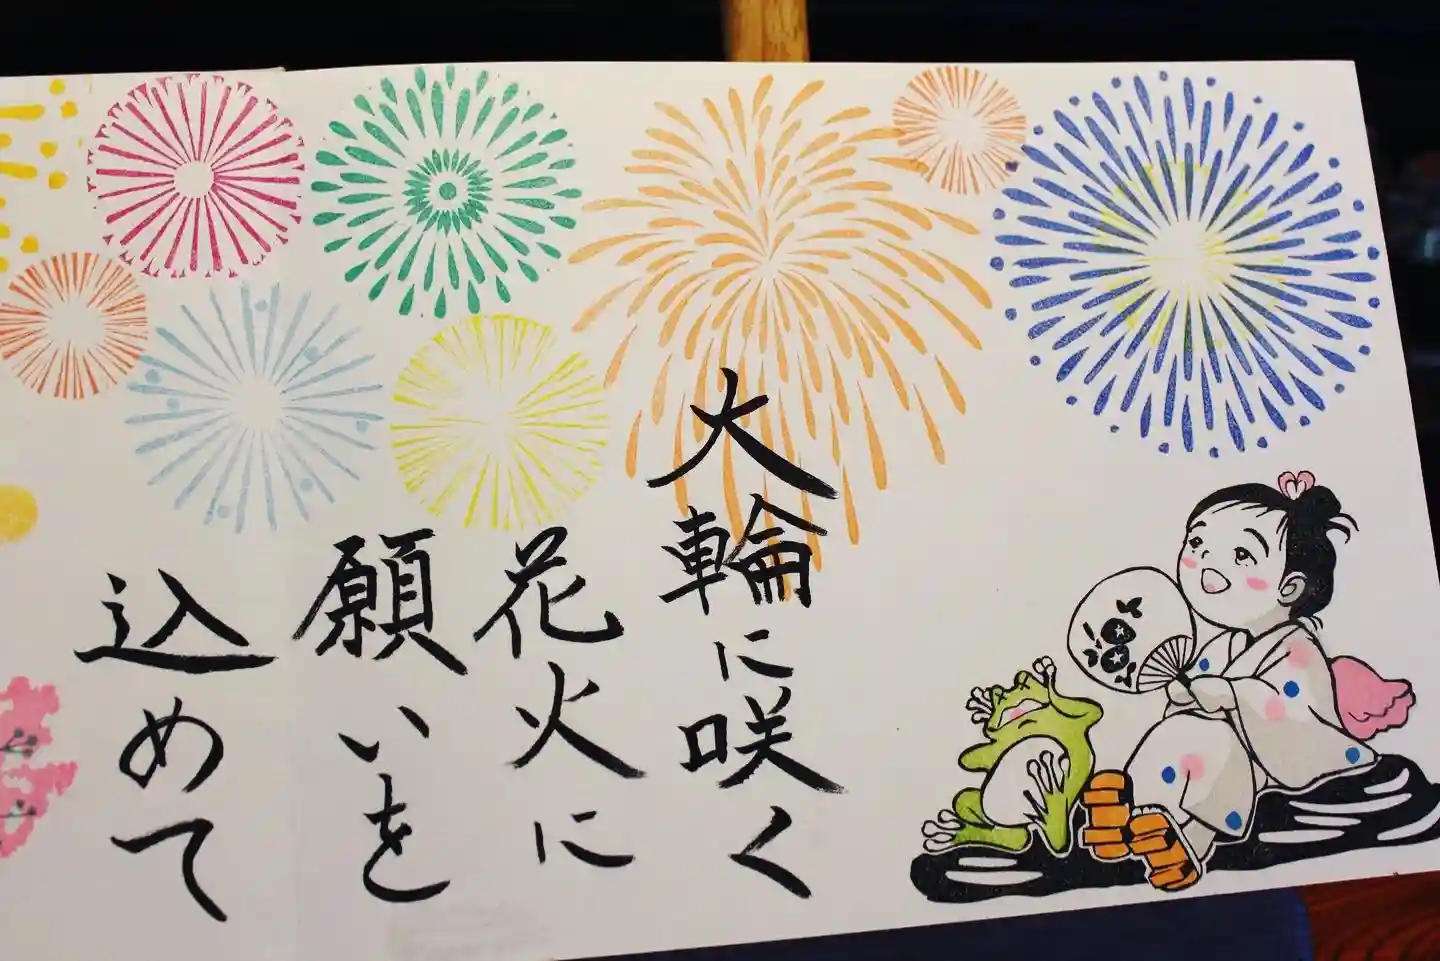 大輪に咲く
花火に
願いを
込めて